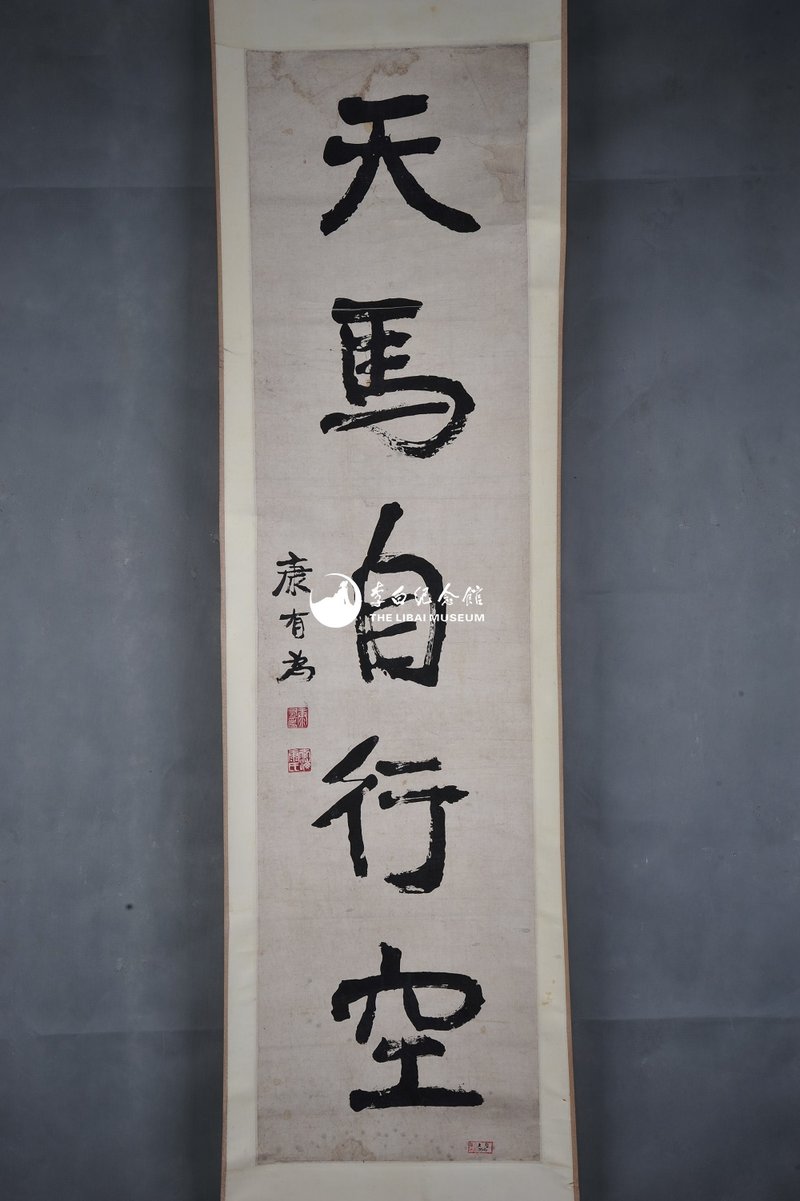 天馬自行空
康有為
李白纪念館
THE LIBAI MUSEUM